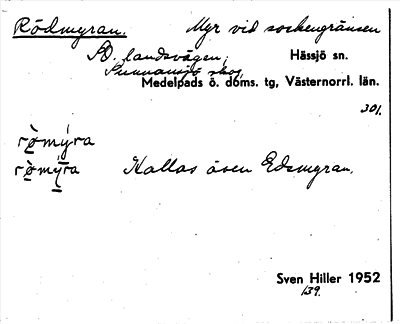 Rödmyran. Myr vid sockengränsen
SO. landsvägen, Hässjö sn.
Sunnansjö skog,
Medelpads ö. doms. tg, Västernorrl. län.
301.
rø̀mýra
rø̀mýra Kallas även Edsmyran.
Sven Hiller 1952
139.